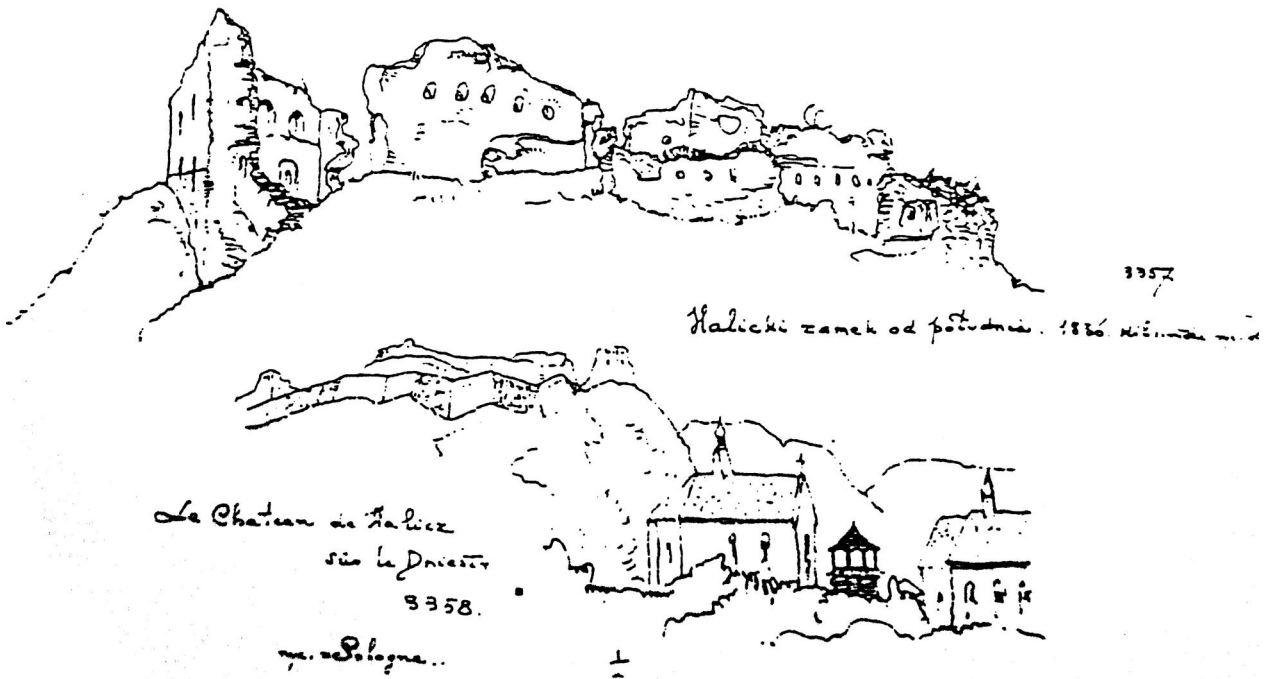 3357
Halicki zamek od południa. 1836.
Le Chateau de Halicz
sur le Dniestr
3358.
Pologne..